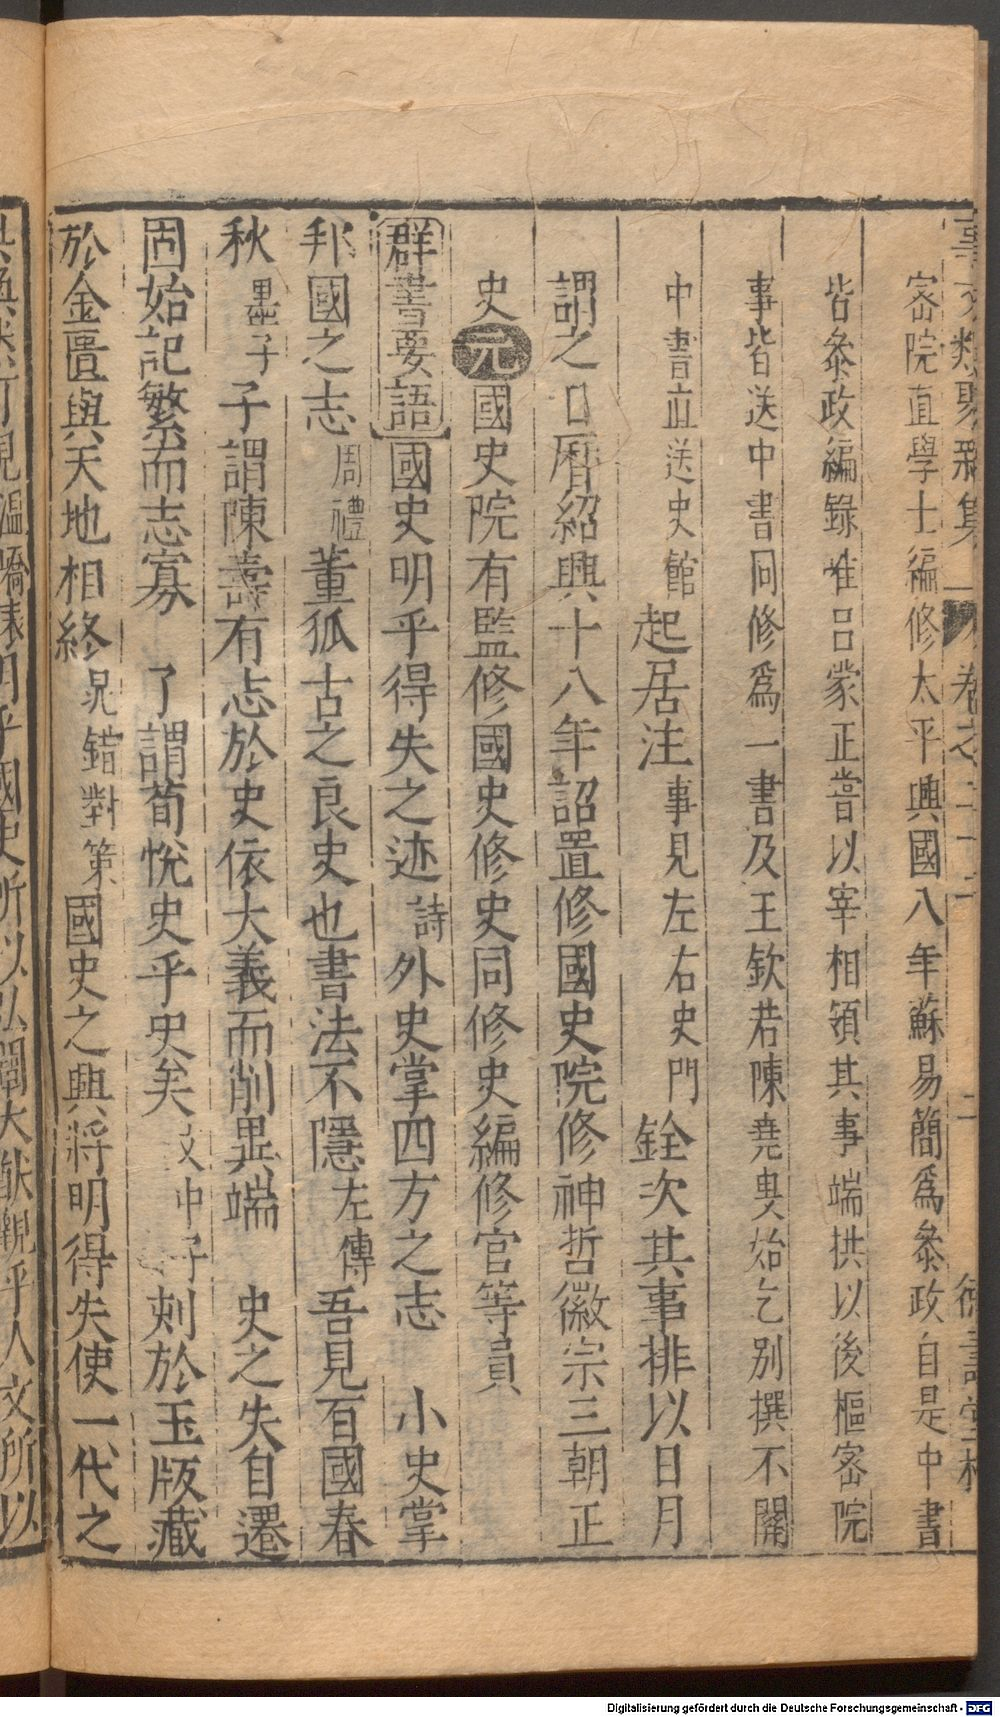 宻院直學士編修太平興國八年蘇易簡爲叅政自是中書
皆叅政編錄惟吕蒙正嘗以宰相領其事端拱以後樞宻院
事皆送中書同修爲一書及王欽若陳堯叟始乞别撰不關
中書直送史館起居注事見左右史門銓次其事排以日月
謂之日曆紹興十八年詔置修國史院修神哲徽宗三朝正
史元國史院有監修國史修史同修史編修官等員
群書要語國史明乎得失之迹詩外史掌四方之志 小史掌
邦國之志周禮董狐古之良史也書法不隱左傳吾見百國春
秋墨子子謂陳壽有志於史依大義而削異端 史之失自遷
固始記繁而志寡 子謂荀悅史乎史矣文中子刻於玉版藏
於金匱與天地相終晁錯對策國史之興將明得失使一代之
事文類聚新集 卷之二十二 二 德壽堂梓
明乎國史所以弘闡大猷觀乎人文所以
Digitalisierung gefördert durch die Deutsche Forschungsgemeinschaft - DFG